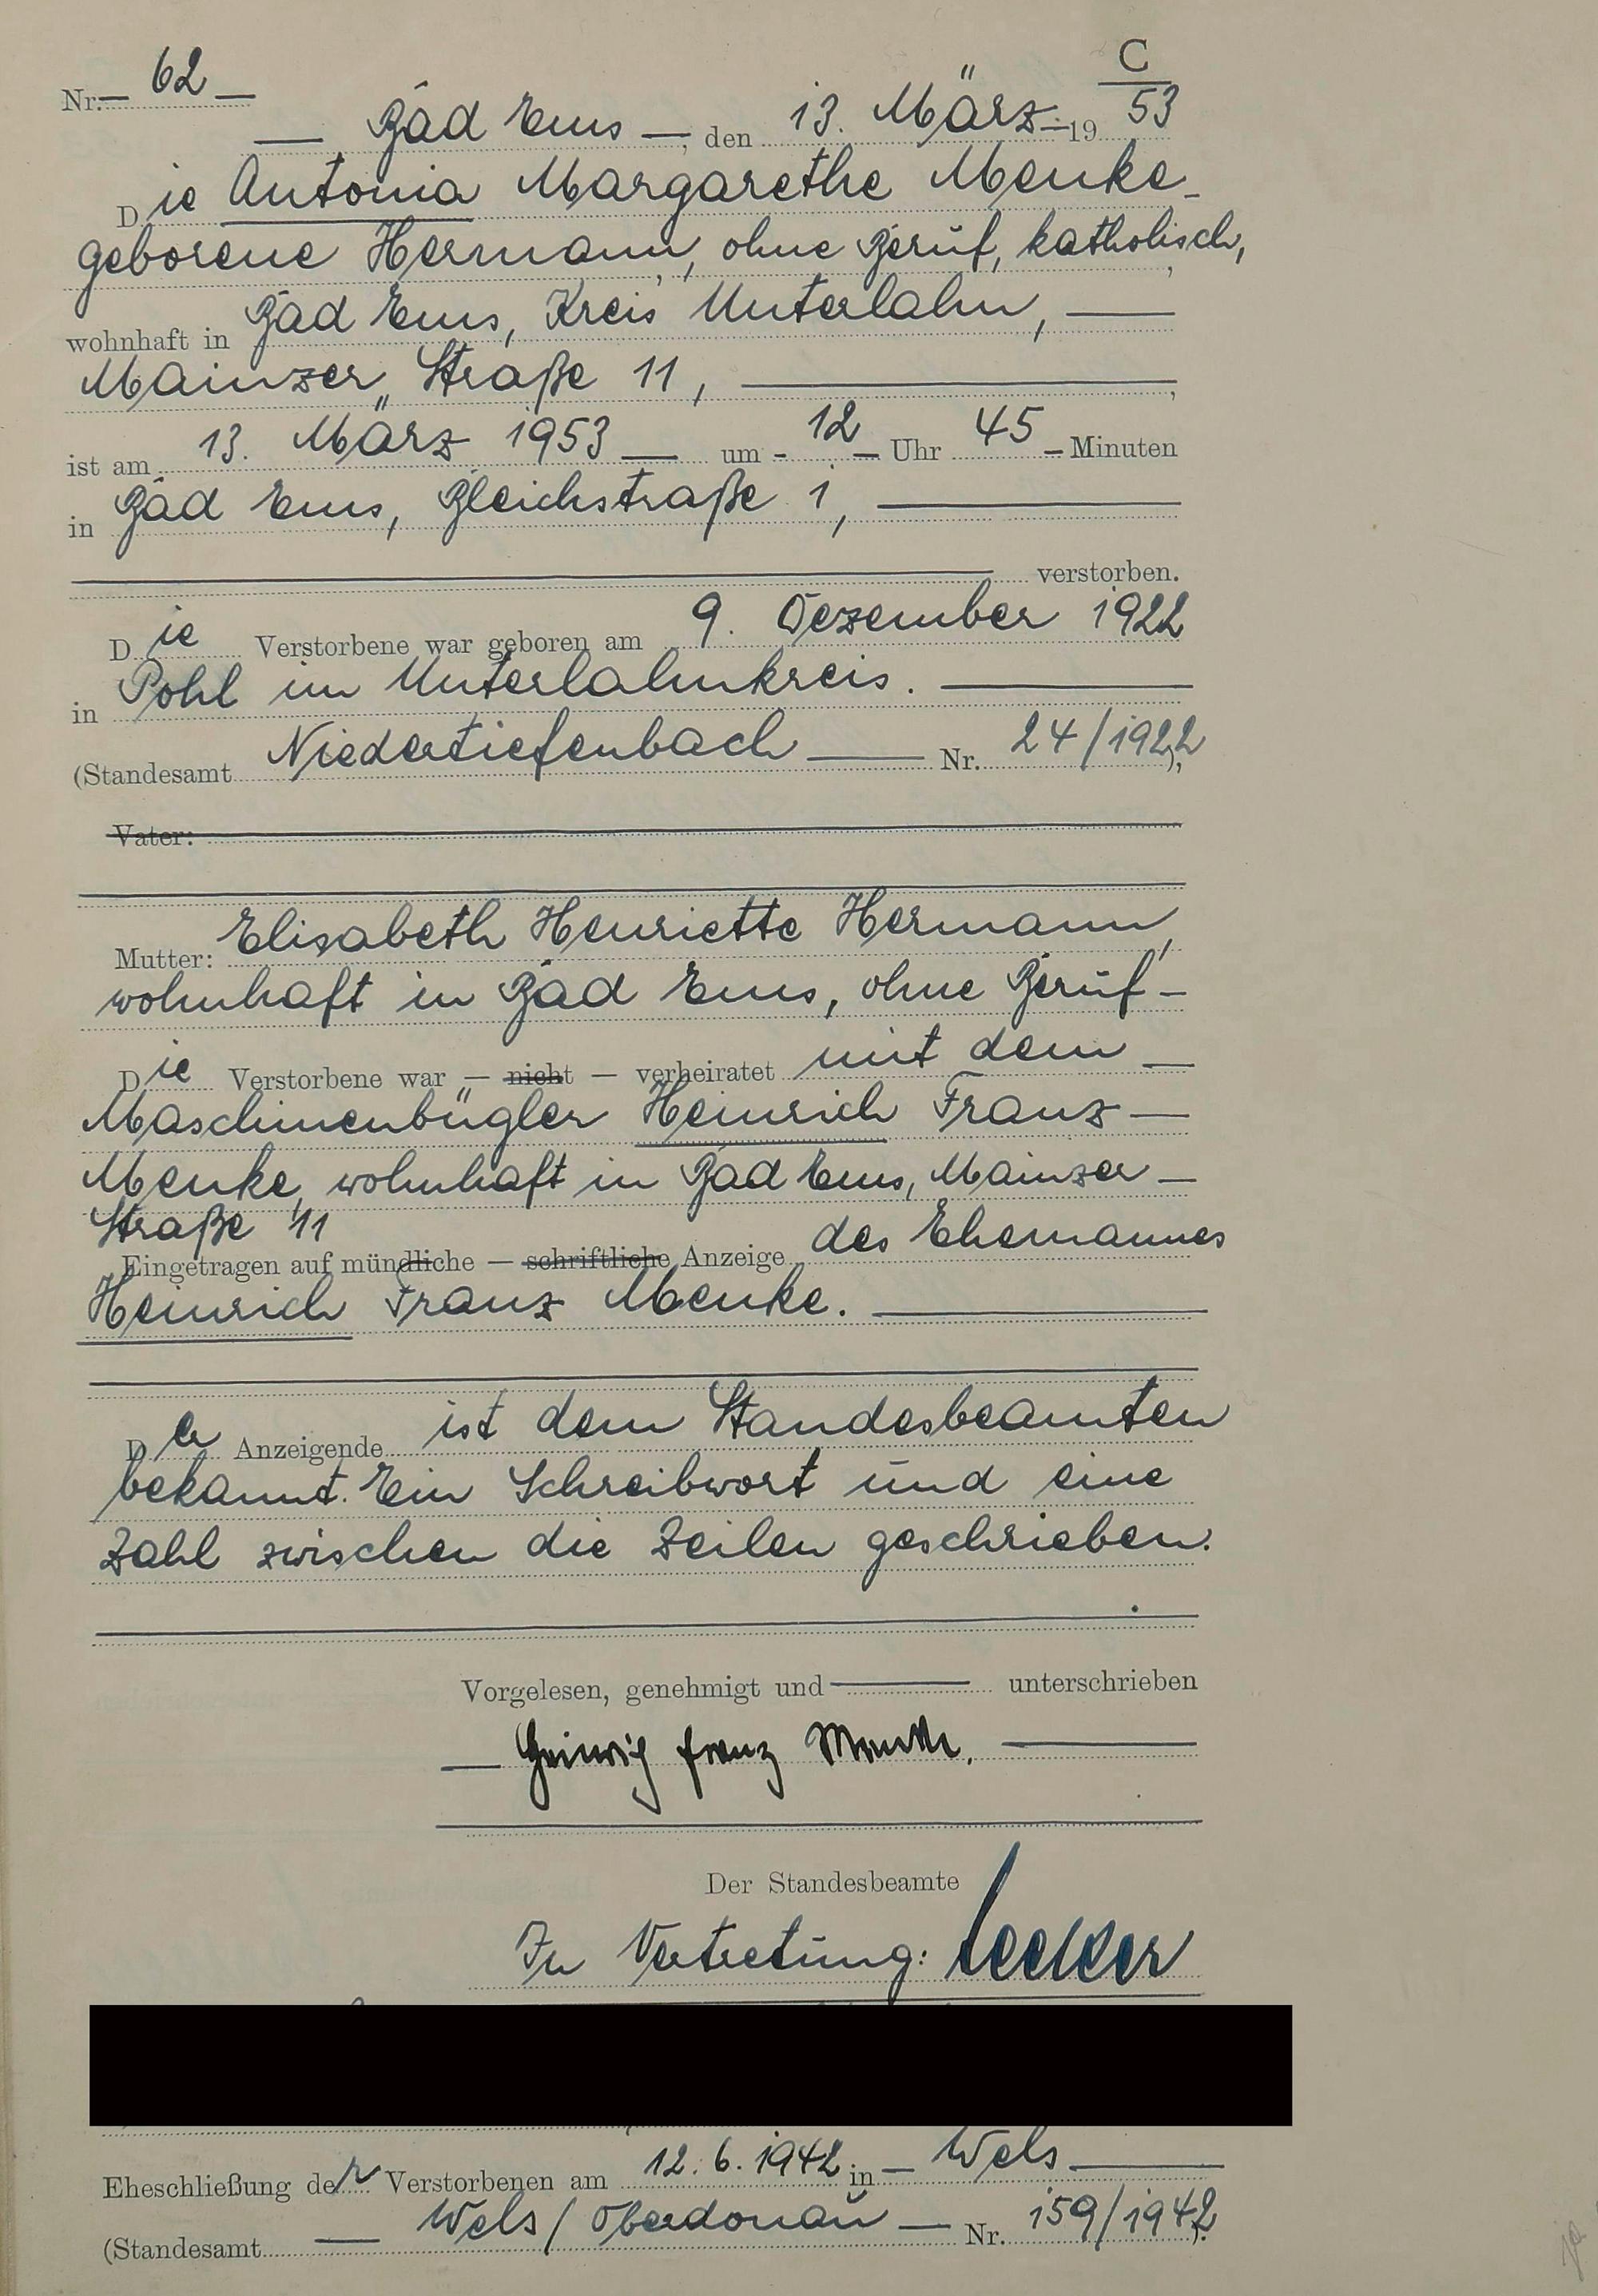 C
Nr. — 62 —
— Bad Ems —, den 13. März — 19 53
Die Antonia Margarethe Menke —
geborene Hermann, ohne Beruf, katholisch,
wohnhaft in Bad Ems, Kreis Unterlahn, —
Mainzer Straße 11, —
ist am 13. März 1953 — um - 12 — Uhr 45 — Minuten
in Bad Ems, Bleichstraße 1, —
verstorben.
Die Verstorbene war geboren am 9. Dezember 1922
in Pohl im Unterlahnkreis. —
(Standesamt Niedertiefenbach — Nr. 24/1922),
Vater:
Mutter: Elisabeth Henriette Hermann,
wohnhaft in Bad Ems, ohne Beruf —
Die Verstorbene war — nicht — verheiratet mit dem —
Maschinenbügler Heinrich Franz —
Menke, wohnhaft in Bad Ems, Mainzer —
Straße 11
Eingetragen auf mündliche — schriftliche Anzeige des Ehemannes
Heinrich Franz Menke. —
Der Anzeigende ist dem Standesbeamten
bekannt. Ein Schreibwort und eine
Zahl zwischen die Zeilen geschrieben.
Vorgelesen, genehmigt und — unterschrieben
— Heinrich Franz Menke. —
Der Standesbeamte
In Vertretung:
Eheschließung der Verstorbenen am 12.6.1942 in — Wels —
(Standesamt — Wels / Oberdonau — Nr. 159/1942).